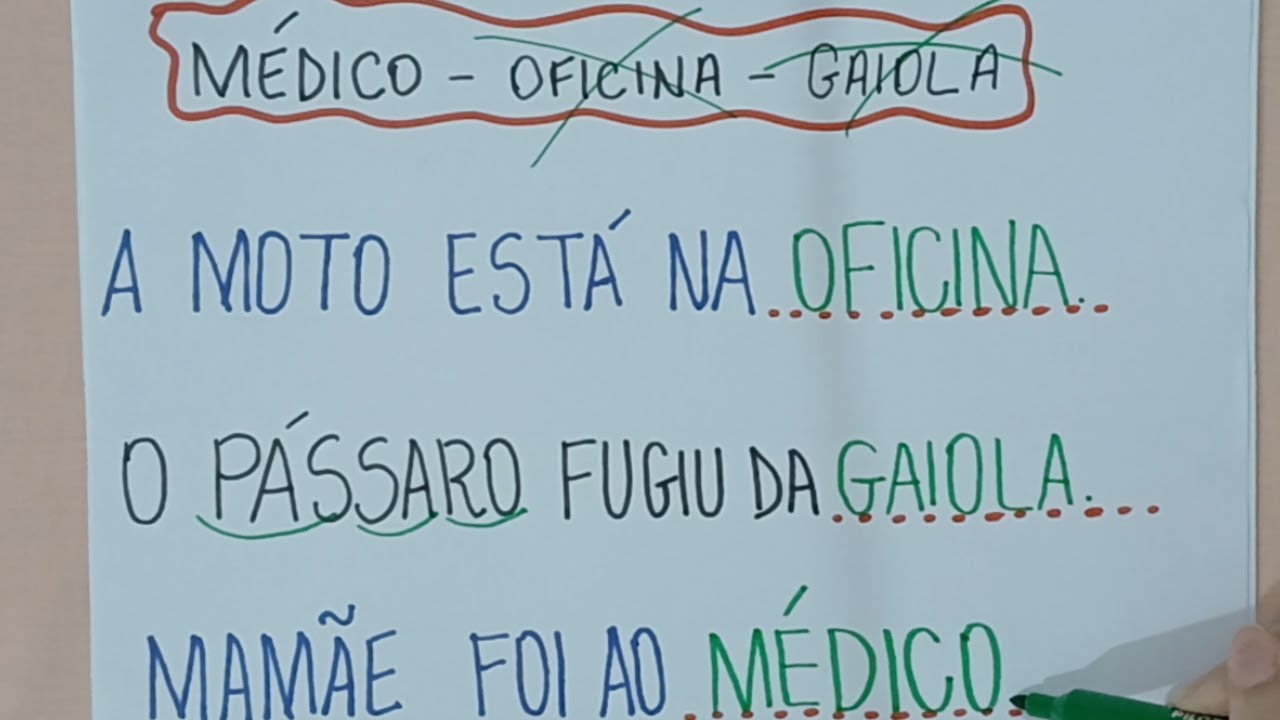 MÉDICO - OFICINA - GAIOLA
A MOTO ESTÁ NA OFICINA.
O PÁSSARO FUGIU DA GAIOLA.
MAMÃE FOI AO MÉDICO.